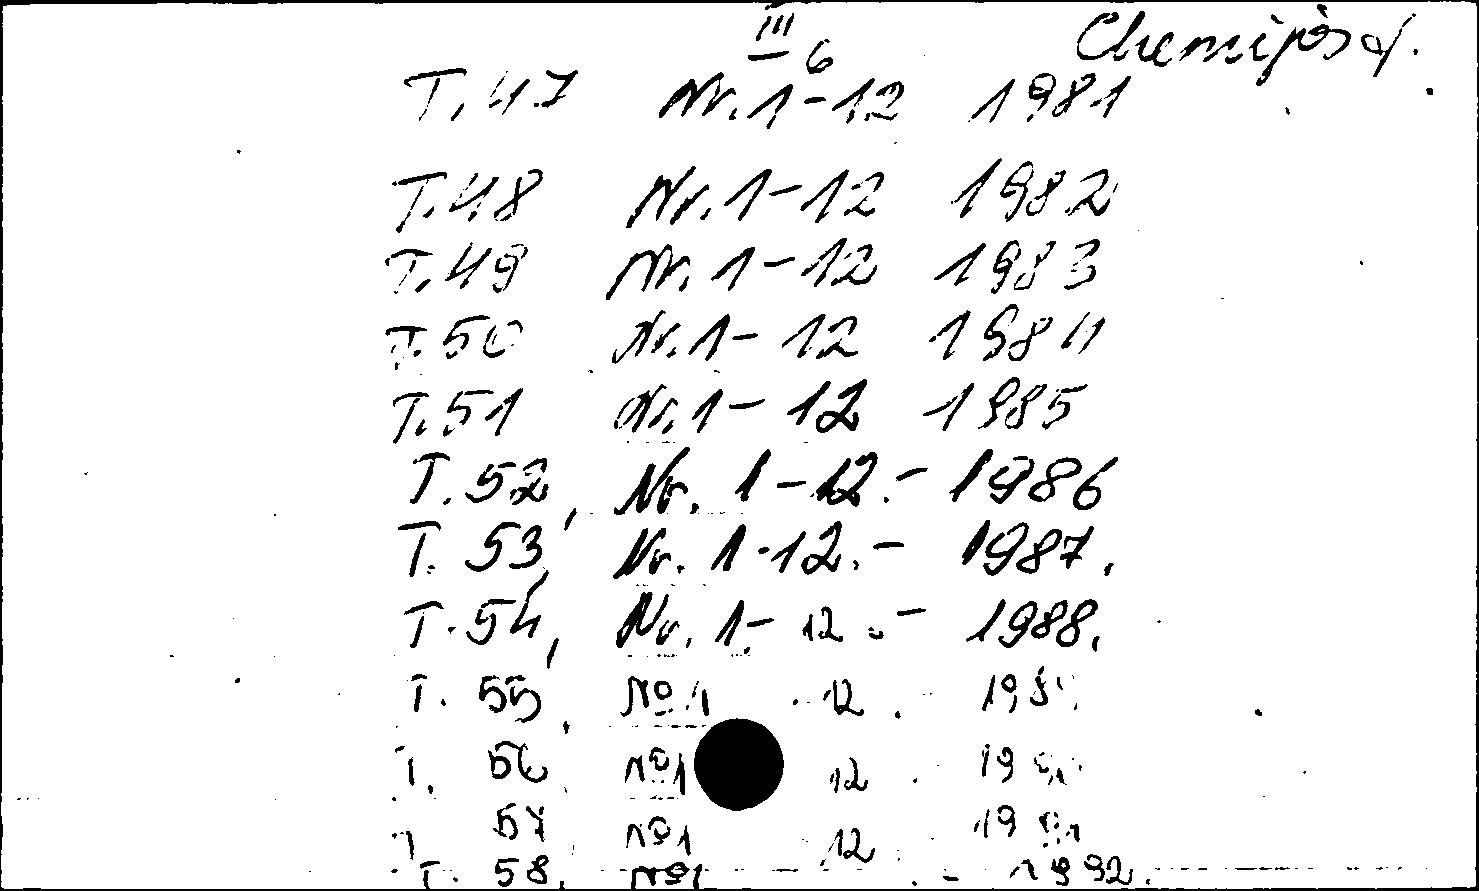 III 6
T. 47 Nr. 1-12 1981
T. 48 Nr. 1-12 1982
T. 49 Nr. 1-12 1983
T. 50 Nr. 1-12 1984
T. 51 Nr. 1-12 1985
T. 52, Nr. 1-12.- 1986
T. 53, Nr. 1-12.- 1987.
T. 54, Nr. 1-12.- 1988.
T. 55, No 1 12. 1989
T. 56, No 1 12 19
57 No 1 12 19
T. 58, No 1 - 1992.